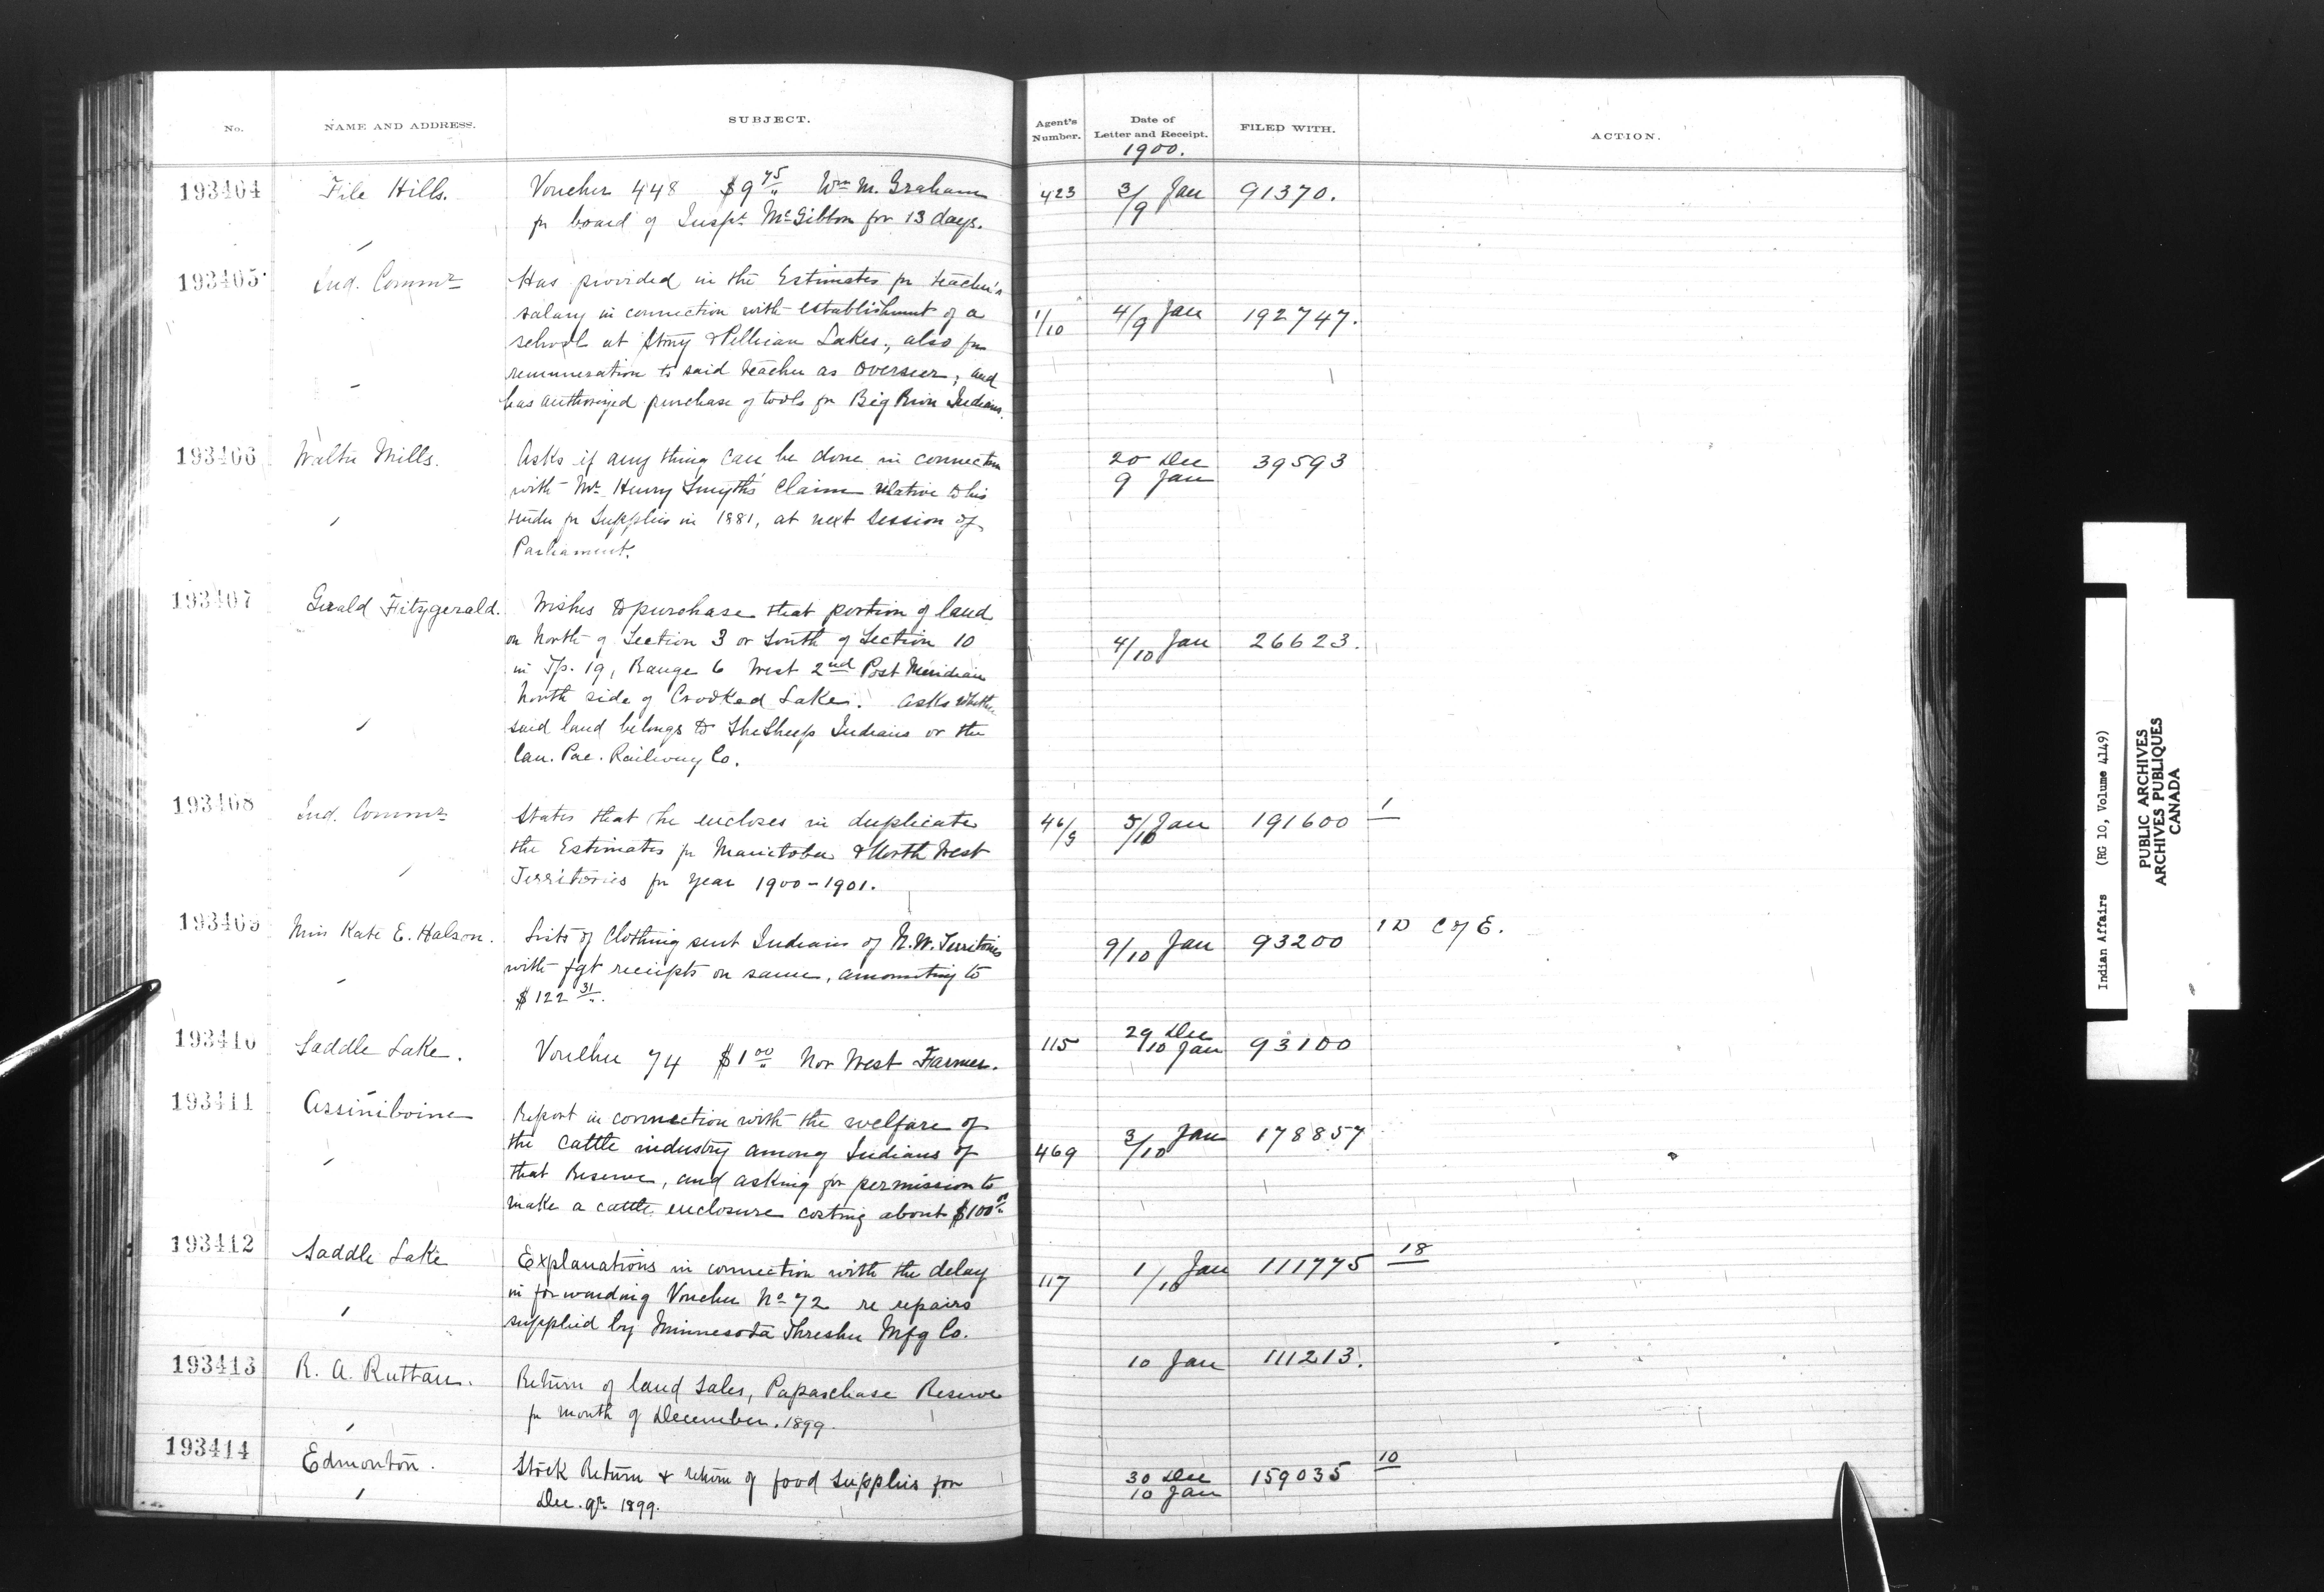 No. NAME AND ADDRESS. SUBJECT. Agent's Number. Date of Letter and Receipt. FILED WITH. ACTION.
1900.
193404 File Hills. Voucher 448 $9 75 Wm M. Graham 423 3/9 Jan 91370.
fr board of Inspt McGibbon for 13 days.
193405 Ind. Commr Has provided in the Estimates fr teacher's
salary in connection with establishment of a 1/10 4/9 Jan 192747.
school at Stony & Pellican Lakes, also fr
remuneration to said teacher as overseer, and
has authorized purchase of tools fr Big River Indians.
193406 Walter Mills. Asks if any thing can be done in connection 20 Dec 39593
with Mr Henry Smyth's claim relative to his 9 Jan
tender fr Supplies in 1881, at next session of
Parliament.
193407 Gerald Fitzgerald. Wishes to purchase that portion of land
on North of Section 3 or South of Section 10 4/10 Jan 26623.
in Tp. 19, Range 6 West 2nd Post Meridian
North side of Crooked Lake. Asks whether
said land belongs to The Sheep Indians or the
Can. Pac. Railway Co.
193408 Ind. Commr States that he encloses in duplicate 46/9 5/10 Jan 191600 1
the Estimates fr Manitoba & North West
Territories fr year 1900-1901.
193409 Miss Kate E. Halson. Lists of Clothing sent Indians of N.W. Territories 9/10 Jan 93200 1D C of E.
with fgt receipts on same, amounting to
$122 31.
193410 Saddle Lake. Voucher 74 $1 00 Nor West Farmer. 115 29 Dec 93100
10 Jan
193411 Assiniboine Report in connection with the welfare of
the cattle industry among Indians of 469 3/10 Jan 178857
that Reserve, and asking for permission to
make a cattle enclosure costing about $100 00
193412 Saddle Lake Explanations in connection with the delay 117 1/10 Jan 111775 18
in forwarding Voucher No 72 re repairs
supplied by Minnesota Thresher Mfg Co.
193413 R. A. Ruttan. Return of land sales, Papaschase Reserve 10 Jan 111213.
fr month of December. 1899.
193414 Edmonton. Stock Return & return of food supplies for 30 Dec 159035 10
Dec. qr. 1899. 10 Jan
Indian Affairs (RG 10, Volume 4149)
PUBLIC ARCHIVES
ARCHIVES PUBLIQUES
CANADA